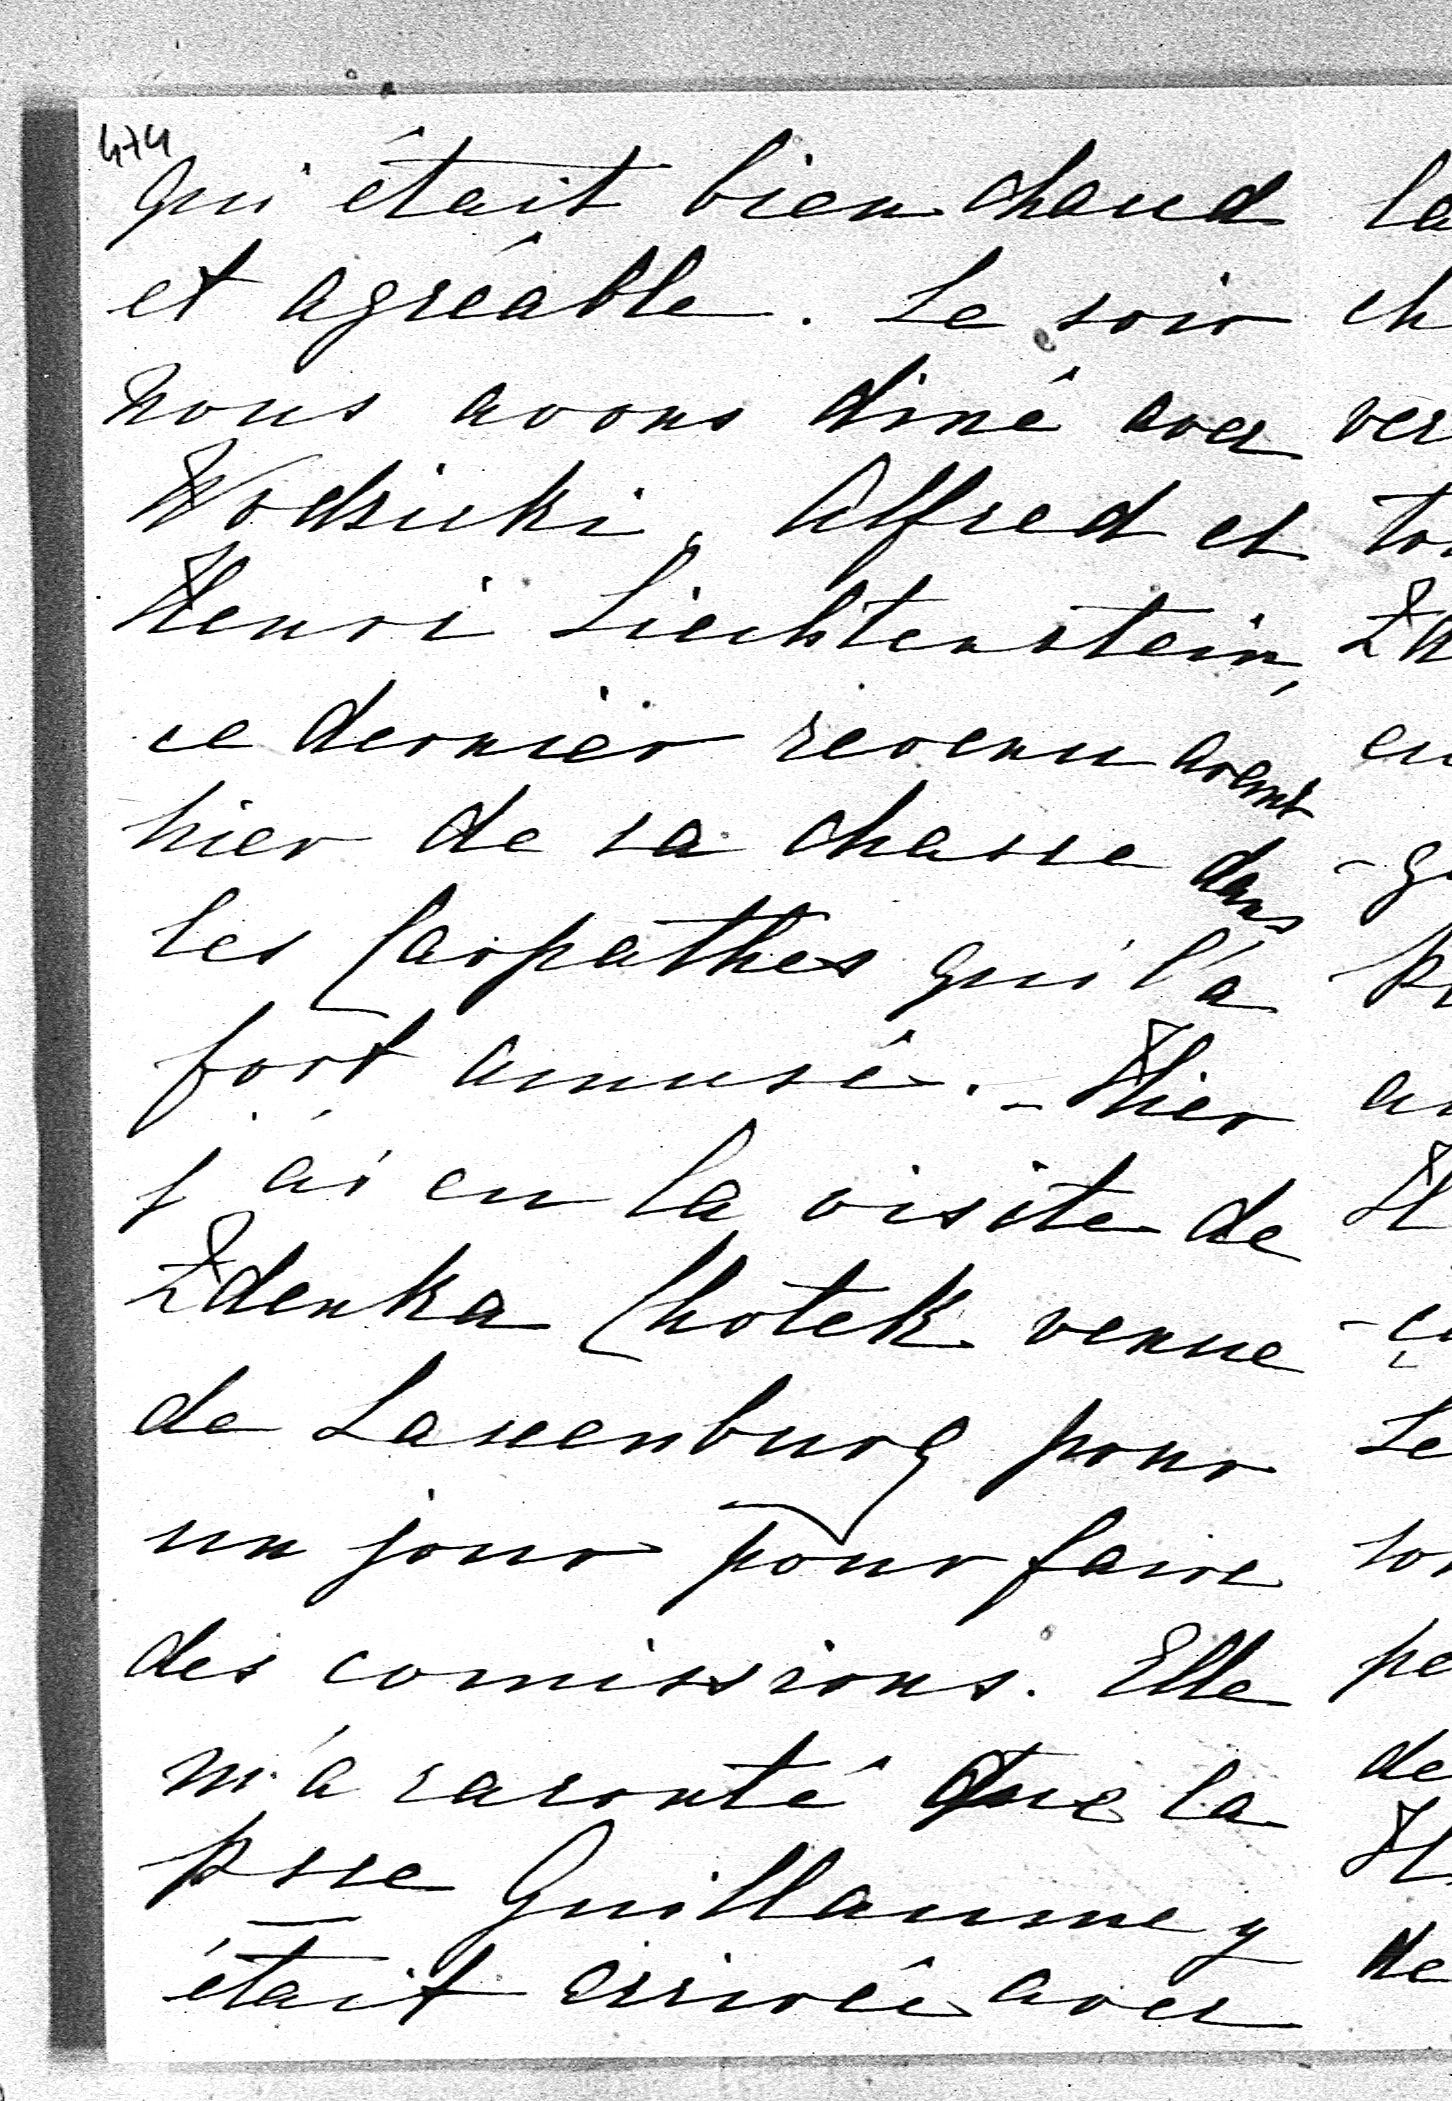 474
qui était bien chaud
et agréable. Le soir
nous avons diné avec
Wodzicki, Alfred et
Henri Liechtenstein,
ce dernier revenu avant
hier de sa chasse dans
les Carpathes qui l'a
fort amusé. - Hier
j'ai eu la visite de
Zdenka Chotek venue
de Laxenburg pour
un jour pour faire
des comissions. Elle
m'a raconté que la
Psse Guillaume y
était arrivée avec